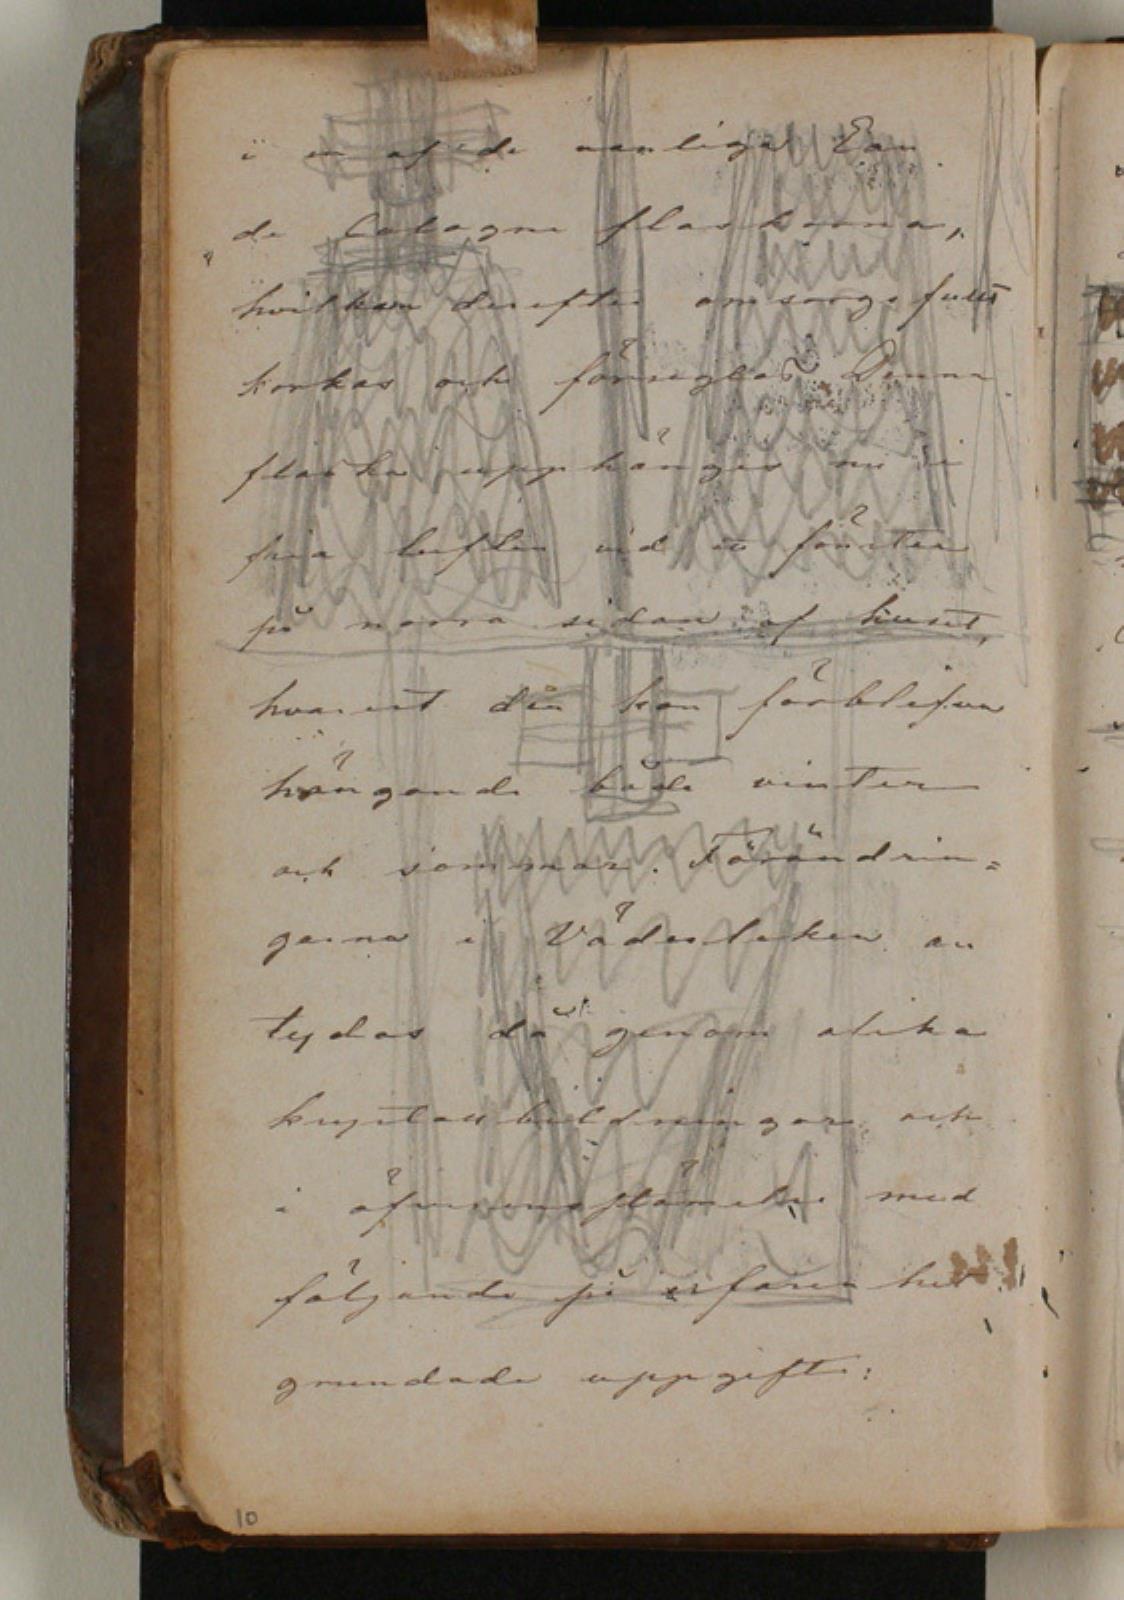 i en af de vanliga Eau
de Cologne flaskorna,
hvilken derefter omsorgsfullt
korkas och förseglas. Denna
flaska upphänges nu i
fria luften vid ett fönster
på norra sidan af huset,
hvarest den kan förblifva
hängande både vinter
och sommar. Förändrin=
garna i Väderleken an
tydas då genom olika
kristallbildningar och
i öfverensstämmelse med
följande på erfarenhet
grundade uppgifter:
10